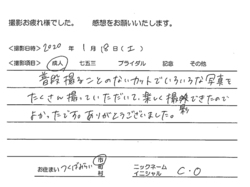 撮影お疲れ様でした。 感想をお願いいたします。
<撮影日時> 2020 年 1 月 18 日(土)
<撮影項目> 成人 七五三 ブライダル 記念 その他
普段撮ることのないカットでいろいろな写真を
たくさん撮っていただいて、楽しく撮影できたので
よかったです。ありがとうございました。
お住まい つくばみらい 市
ニックネーム
イニシャル C・O